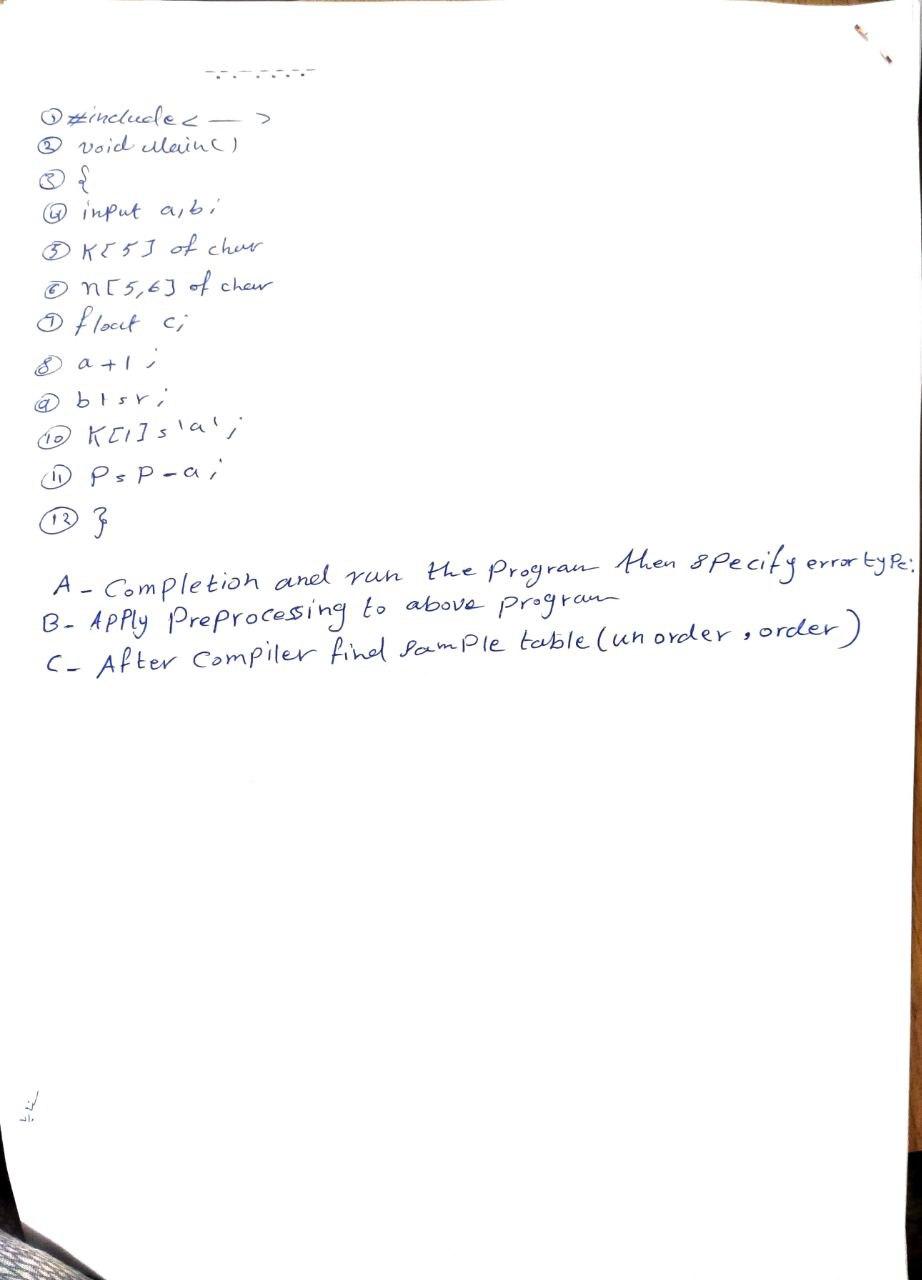 ① #include < — >
② void Main()
③ {
④ input a,b;
⑤ K[5] of char
⑥ n[5,6] of char
⑦ float c;
⑧ a+1;
⑨ b+sr;
⑩ K[1]s'a';
⑪ PsP-a;
⑫ }
A- Completion and run the Program then specify error type:
B- Apply Preprocessing to above program
C- After Compiler find sample table (un order, order)